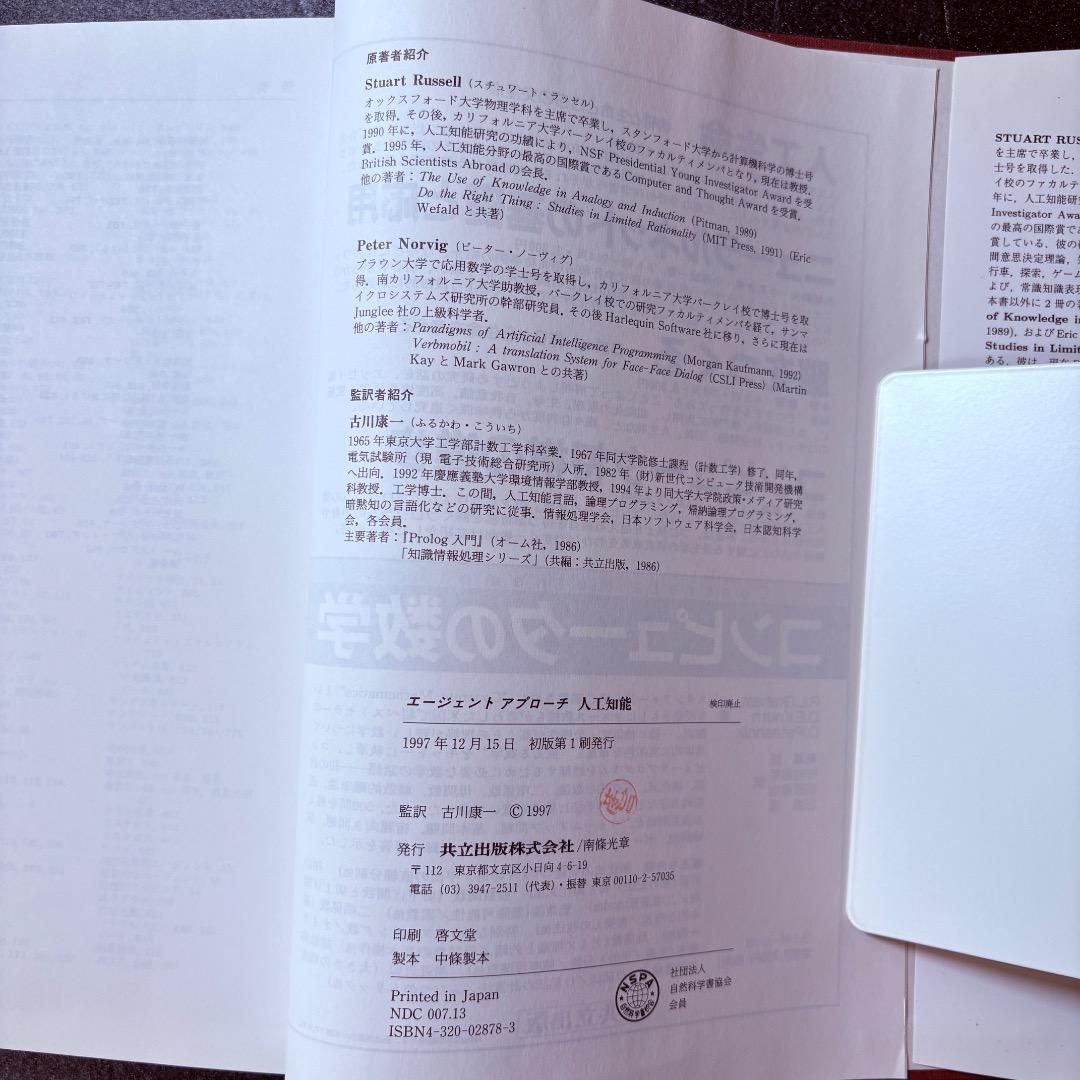 原著者紹介
Stuart Russell（スチュワート・ラッセル）
オックスフォード大学物理学科を主席で卒業し，スタンフォード大学から計算機科学の博士号
を取得．その後，カリフォルニア大学バークレイ校のファカルティメンバとなり，現在は教授．
1990年に，人工知能研究の功績により，NSF Presidential Young Investigator Awardを受
賞．1995年，人工知能分野の最高の国際賞であるComputer and Thought Awardを受賞．
British Scientists Abroadの会長．
他の著者：The Use of Knowledge in Analogy and Induction (Pitman, 1989)
Do the Right Thing : Studies in Limited Rationality (MIT Press, 1991) (Eric
Wefaldと共著)
Peter Norvig（ピーター・ノーヴィグ）
ブラウン大学で応用数学の学士号を取得し，カリフォルニア大学バークレイ校で博士号を取
得．南カリフォルニア大学助教授，バークレイ校での研究ファカルティメンバを経て，サンマ
イクロシステムズ研究所の幹部研究員．その後Harlequin Software社に移り，さらに現在は
Junglee社の上級科学者．
他の著者：Paradigms of Artificial Intelligence Programming (Morgan Kaufmann, 1992)
Verbmobil : A translation System for Face-Face Dialog (CSLI Press) (Martin
KayとMark Gawronとの共著)
監訳者紹介
古川康一（ふるかわ・こういち）
1965年東京大学工学部計数工学科卒業．1967年同大学院修士課程（計数工学）修了．同年，
電気試験所（現 電子技術総合研究所）入所．1982年（財）新世代コンピュータ技術開発機構
へ出向．1992年慶應義塾大学環境情報学部教授．1994年より同大学大学院政策・メディア研究
科教授．工学博士．この間，人工知能言語，論理プログラミング，帰納論理プログラミング，
暗黙知の言語化などの研究に従事．情報処理学会，日本ソフトウェア科学会，日本認知科学
会，各会員．
主要著者：『Prolog入門』（オーム社，1986）
「知識情報処理シリーズ」（共編：共立出版，1986）
エージェント アプローチ 人工知能
検印廃止
1997年12月15日 初版第1刷発行
監訳 古川康一 ©1997
発行 共立出版株式会社/南條光章
〒112 東京都文京区小日向4-6-19
電話（03）3947-2511（代表）・振替 東京00110-2-57035
印刷 啓文堂
製本 中條製本
Printed in Japan
NDC 007.13
ISBN4-320-02878-3
NSPA
社団法人
自然科学書協会
会員
STUART RUS
を主席で卒業し，
士号を取得した．
イ校のファカルテ
年に，人工知能研
Investigator Awa
の最高の国際賞であ
賞している．彼の
間意思決定理論，
行車，探索，ゲーム
よび，常識知識表現
本書以外に2冊の
of Knowledge in
1989)，およびEric
Studies in Limit
ある．彼は，現在